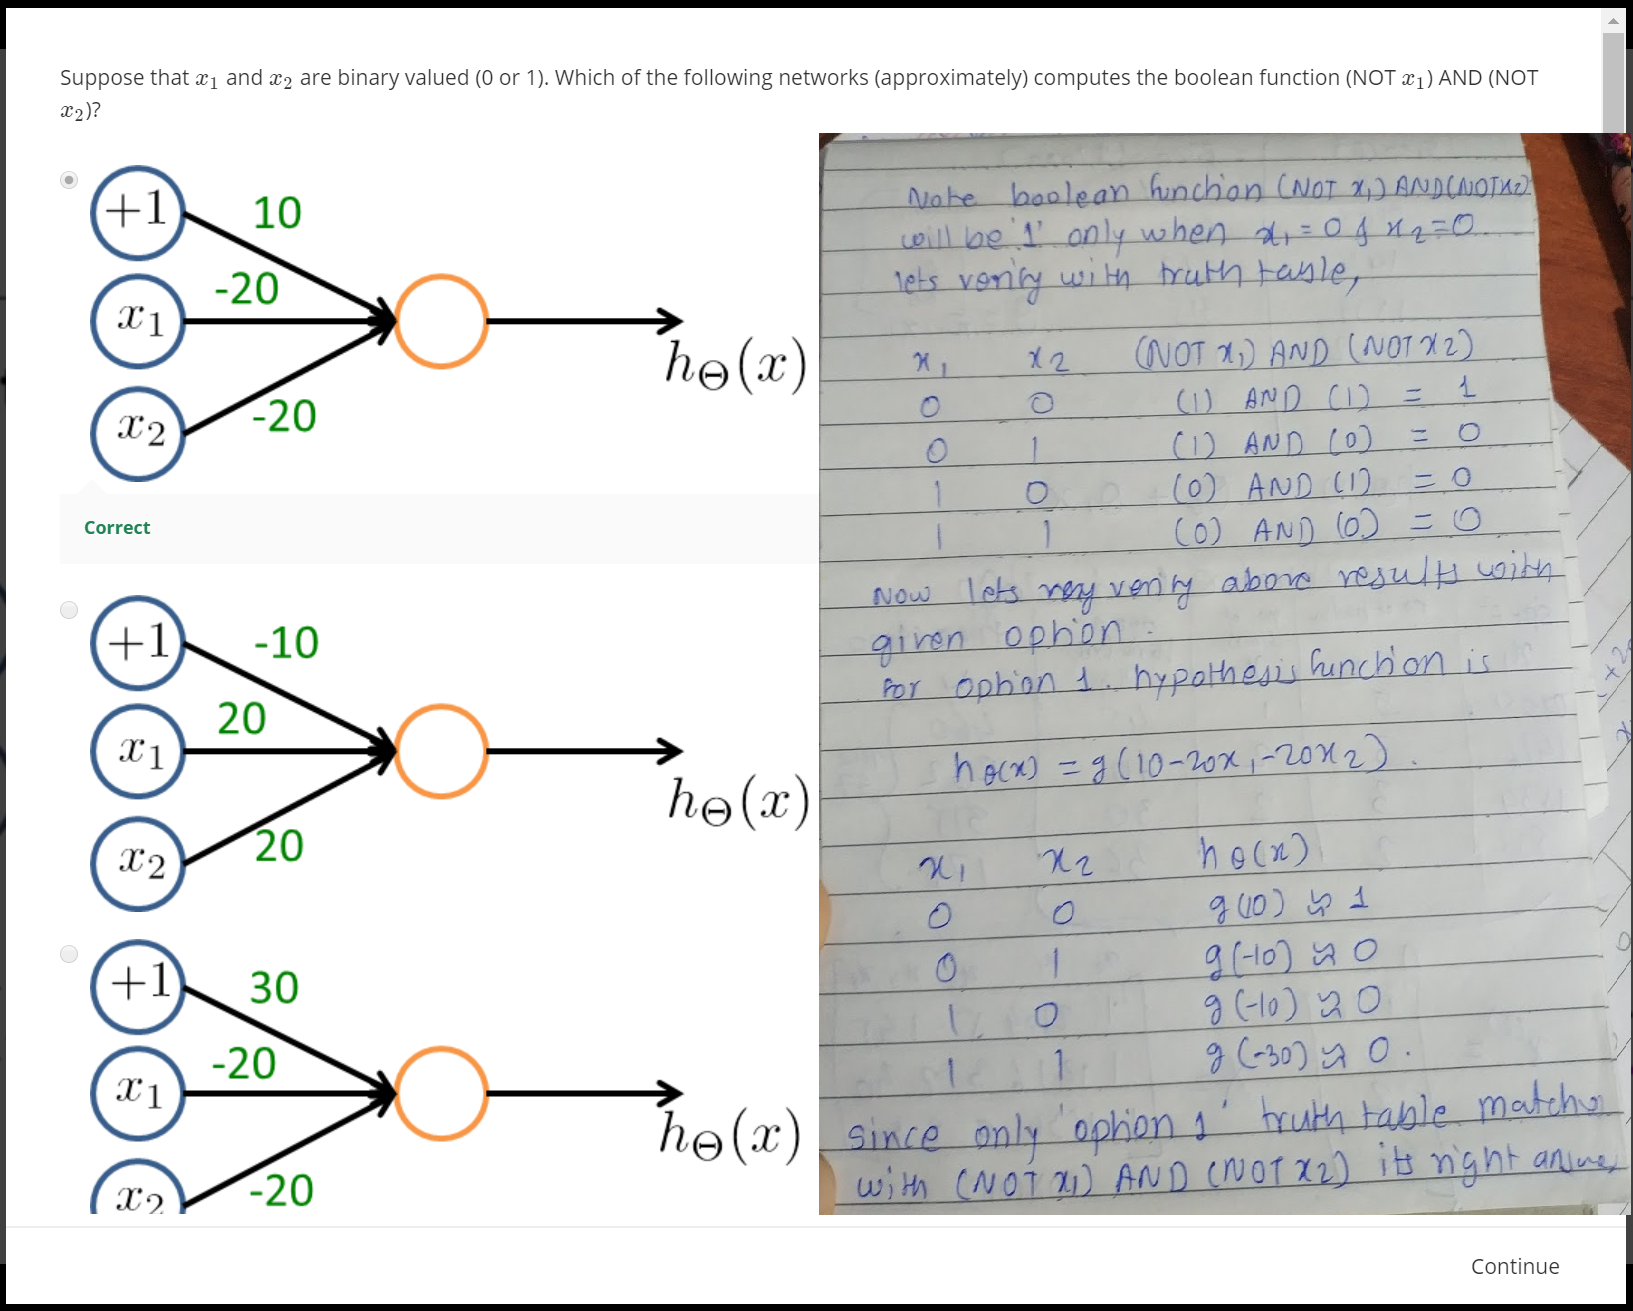 Suppose that x1 and x2 are binary valued (0 or 1). Which of the following networks (approximately) computes the boolean function (NOT x1) AND (NOT
x2)?
+1
10
-20
x1
hΘ(x)
x2
-20
Correct
+1
-10
20
x1
hΘ(x)
x2
20
+1
30
-20
x1
hΘ(x)
x2
-20
Note boolean function (NOT x1) AND (NOT x2)
will be '1' only when x1 = 0 & x2 = 0
lets verify with truth table,
x1 x2 (NOT x1) AND (NOT x2)
0 0 (1) AND (1) = 1
0 1 (1) AND (0) = 0
1 0 (0) AND (1) = 0
1 1 (0) AND (0) = 0
Now lets verify above results with
given option.
for option 1. hypothesis function is
hθ(x) = g(10-20x1-20x2).
x1 x2 hθ(x)
0 0 g(10) ≈ 1
0 1 g(-10) ≈ 0
1 0 g(-10) ≈ 0
1 1 g(-30) ≈ 0.
since only 'option 1' truth table matches
with (NOT x1) AND (NOT x2) its right answer
Continue